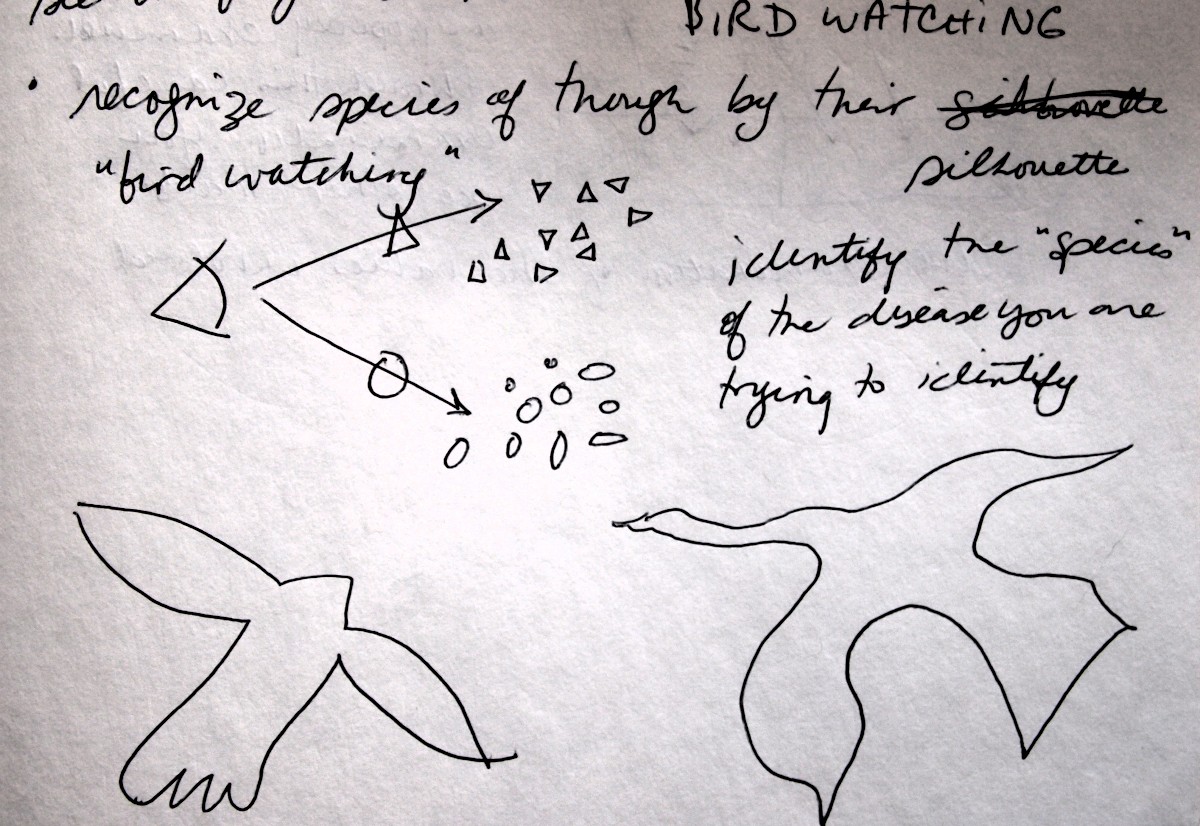 BIRD WATCHING
• recognize species of though by their silhouette
"bird watching"
silhouette
identify the "species"
of the disease you are
trying to identify